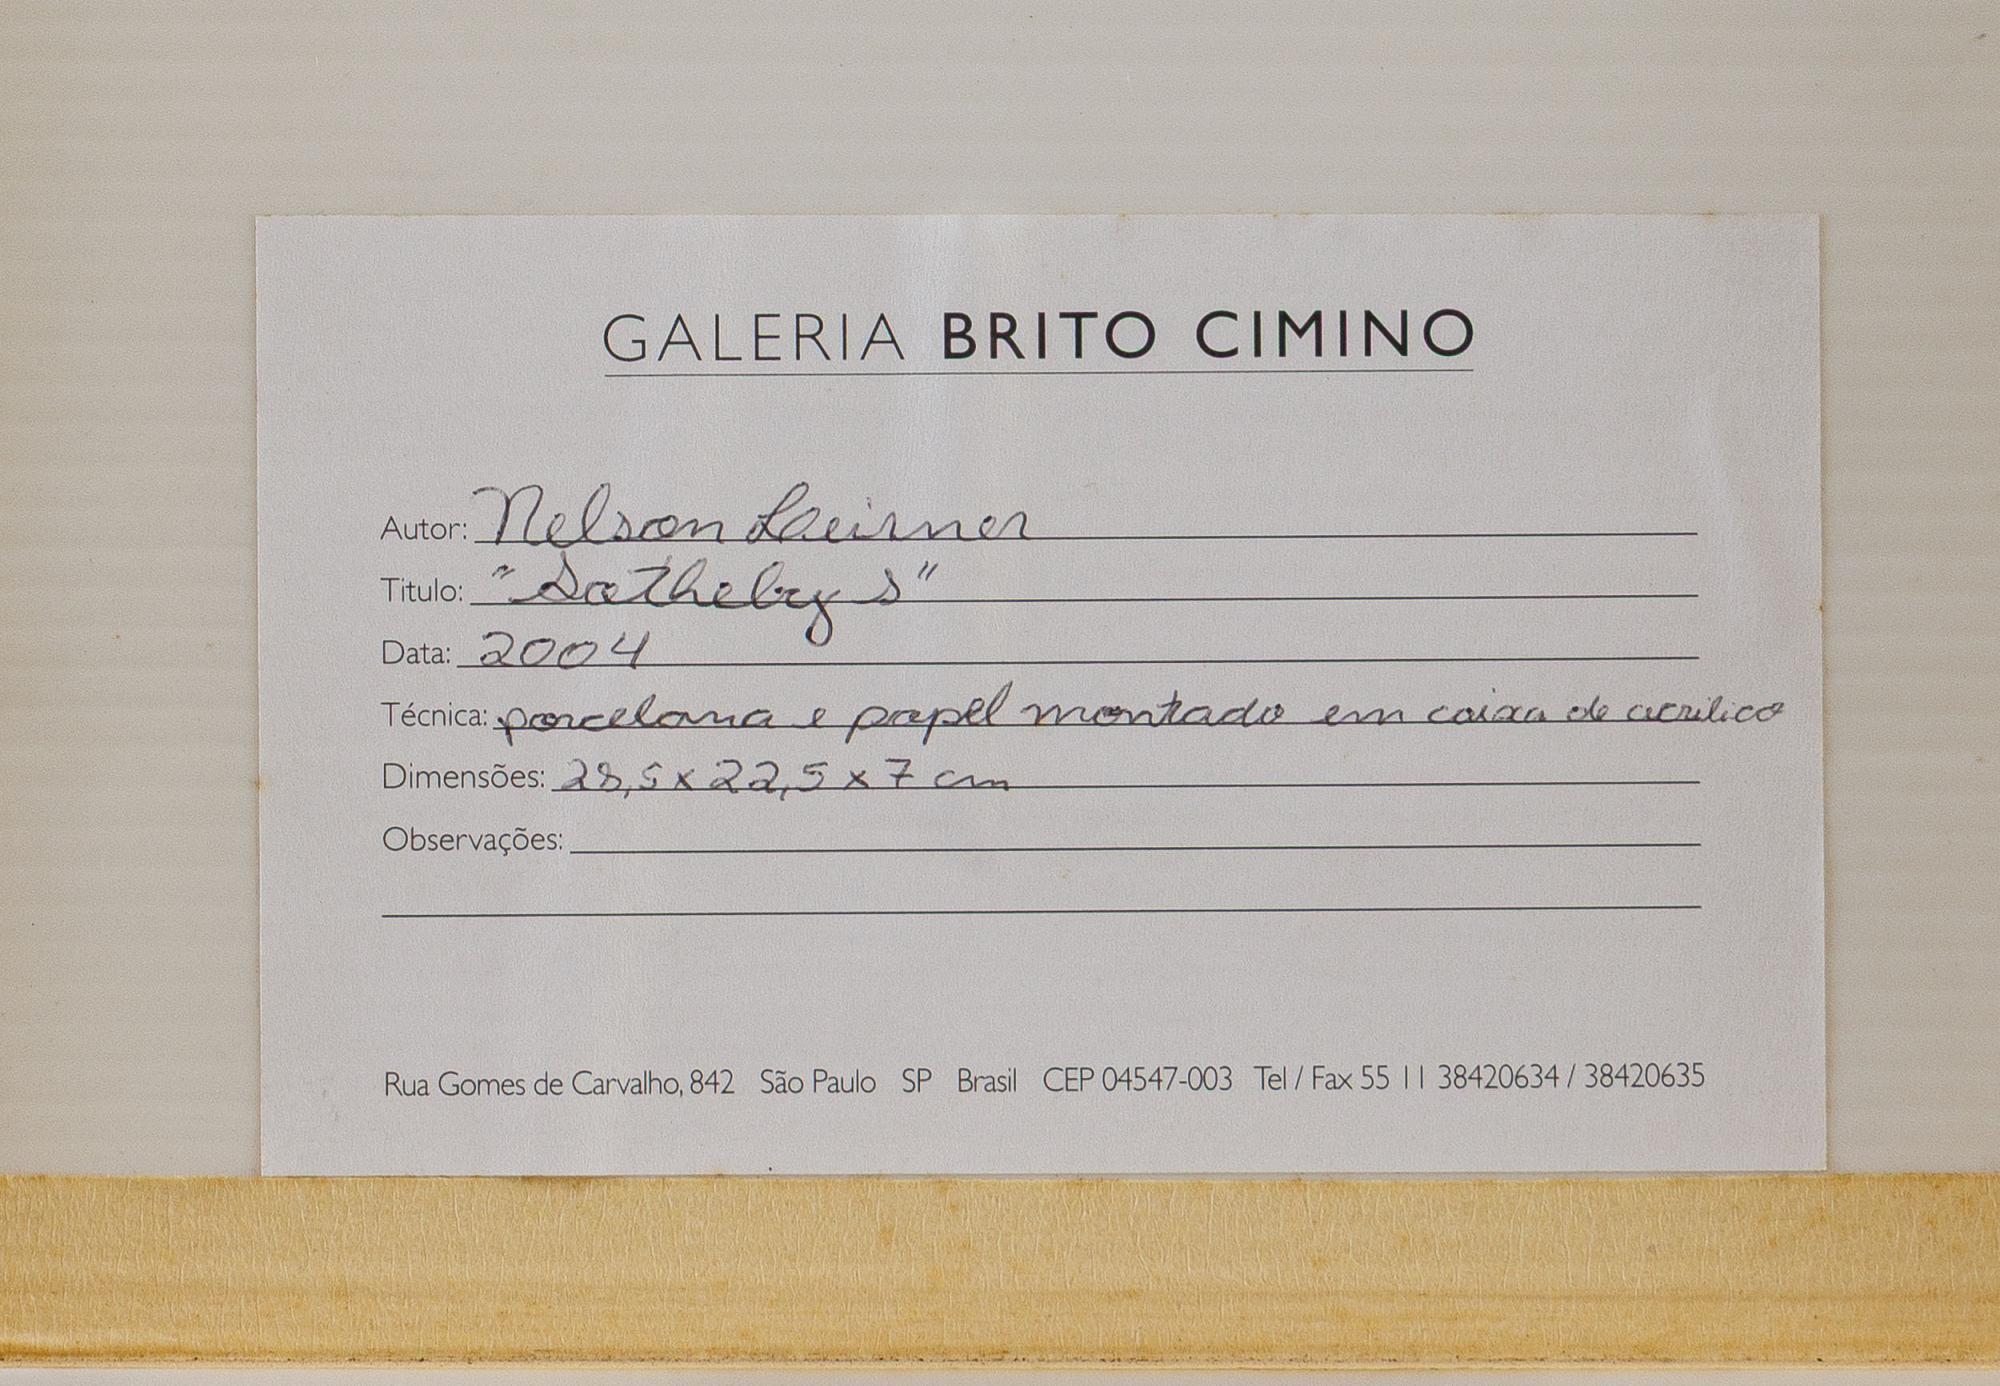 GALERIA BRITO CIMINO
Autor: Nelson Leirner
Titulo: "Sotheby s"
Data: 2004
Técnica: porcelana e papel montado em caixa de acrilico
Dimensões: 28,5 x 22,5 x 7 cm
Observações:
Rua Gomes de Carvalho, 842 São Paulo SP Brasil CEP 04547-003 Tel / Fax 55 11 38420634 / 38420635